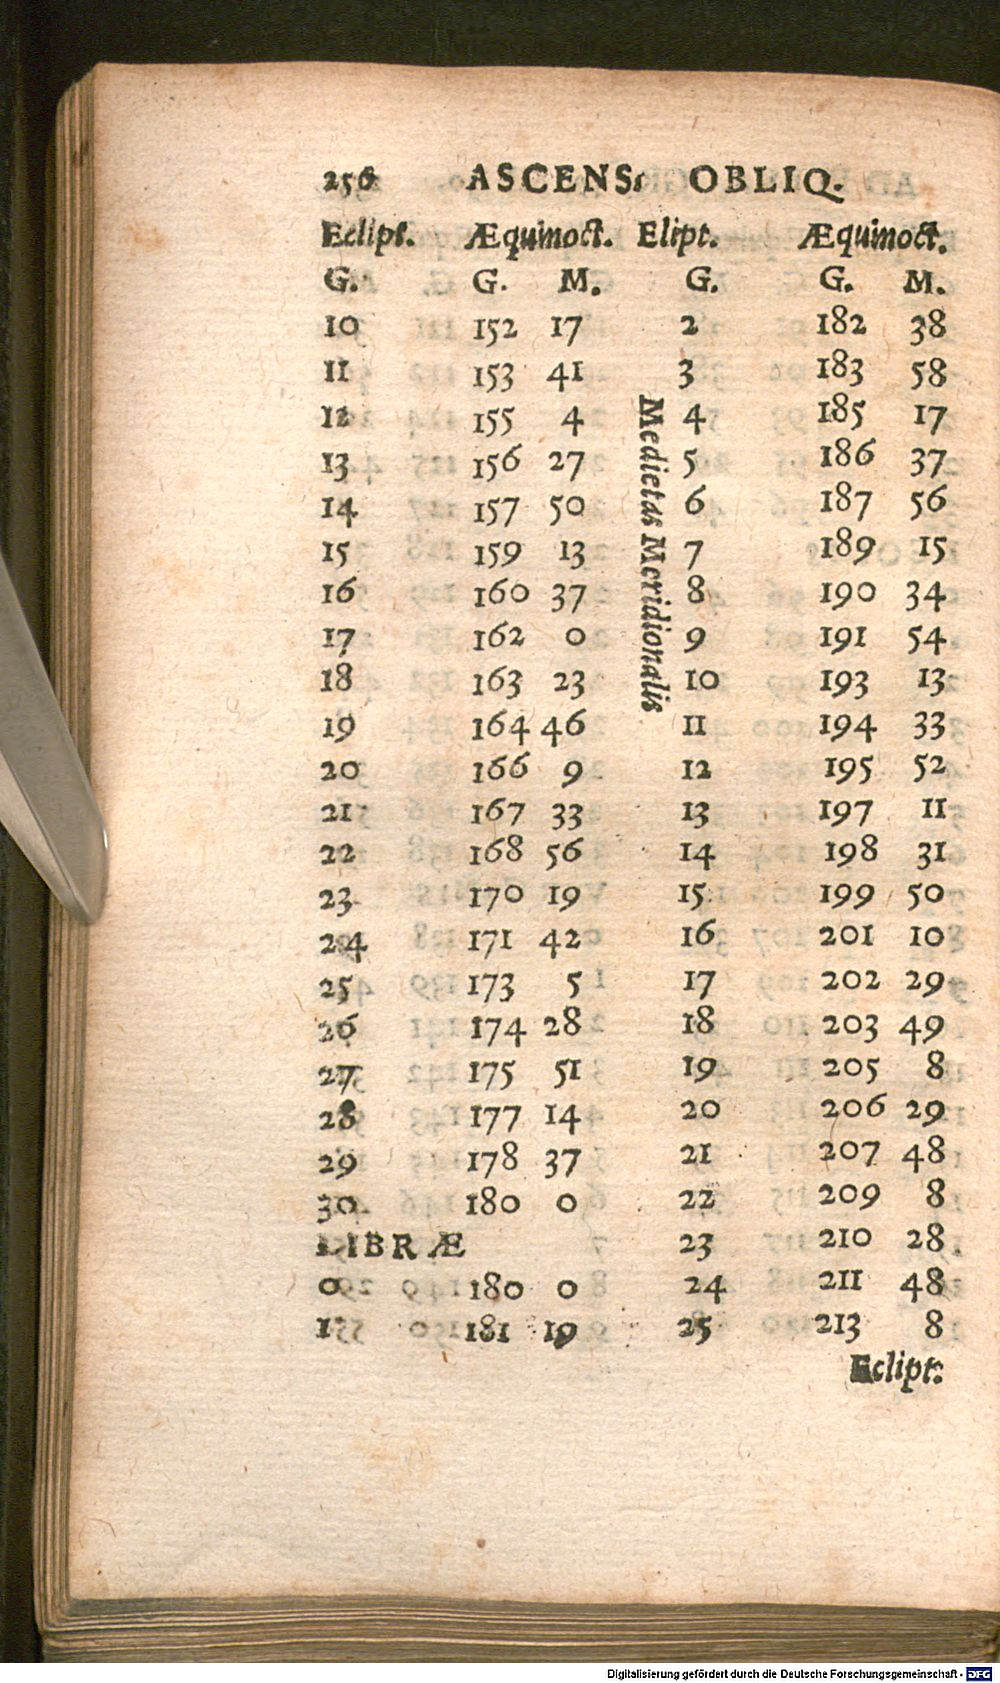 256 ASCENS. OBLIQ.
Eclipt. Æquinoct. Elipt. Æquinoct.
G. G. M. G. G. M.
10 152 17 2 182 38
11 153 41 3 183 58
12 155 4 4 185 17
13 156 27 5 186 37
14 157 50 6 187 56
15 159 13 7 189 15
16 160 37 8 190 34
17 162 0 9 191 54
18 163 23 10 193 13
19 164 46 11 194 33
20 166 9 12 195 52
21 167 33 13 197 11
22 168 56 14 198 31
23 170 19 15 199 50
24 171 42 16 201 10
25 173 5 17 202 29
26 174 28 18 203 49
27 175 51 19 205 8
28 177 14 20 206 29
29 178 37 21 207 48
30 180 0 22 209 8
LIBRÆ 23 210 28
0 180 0 24 211 48
1 181 19 25 213 8
Medietas Meridionalis
Eclipt:
Digitalisierung gefördert durch die Deutsche Forschungsgemeinschaft - DFG